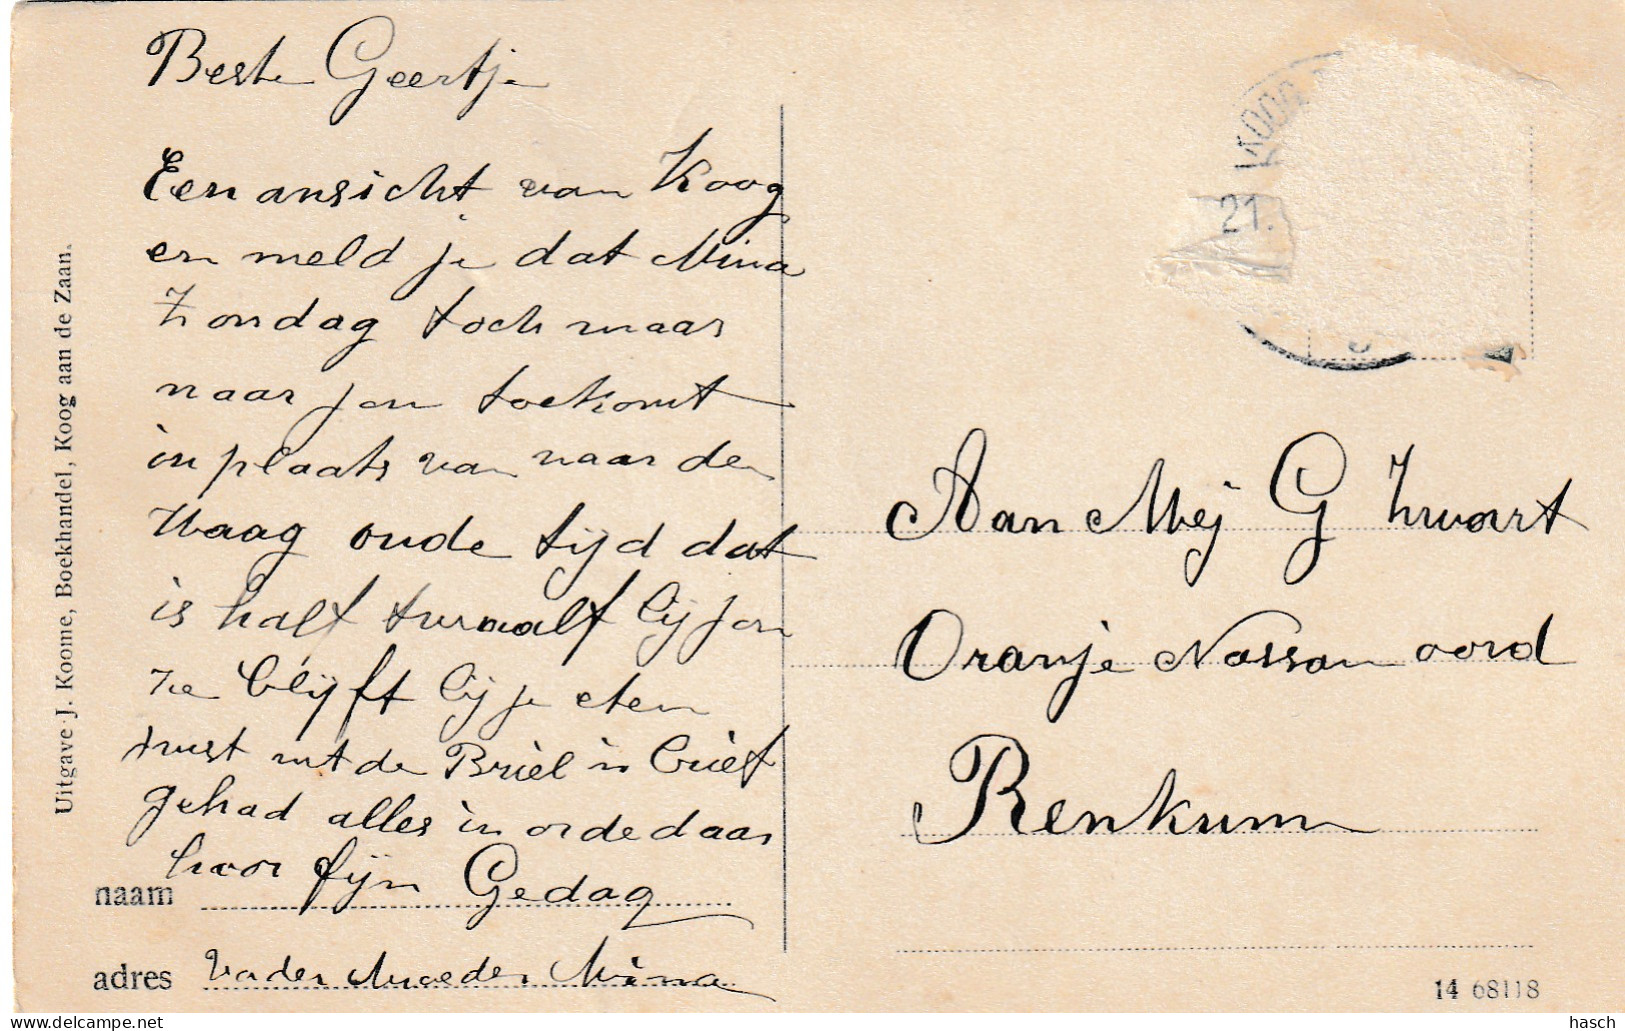 Beste Geertje
Een ansicht van Koog
en meld je dat Mina
Zondag toch maar
naar jou toekomt
in plaats van naar den
Haag oude tijd dat
is half twaalf bij jou
ze blijft bij je eten
uit de Briel is brief
gehad alles in orde daar
hoor fijn Gedag
naam
adres Vader Moeder Mina
Uitgave J. Koome, Boekhandel, Koog aan de Zaan.
KOOG
21.
Aan Mej G Zwart
Oranje Nassau oord
Renkum
14 68118
hasch